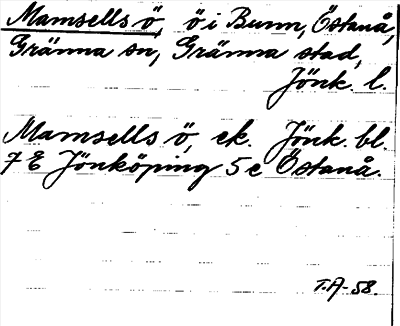 Mamsells ö, ö i Bunn, Östanå,
Gränna sn, Gränna stad,
Jönk. l.
Mamsells ö, ek. Jönk. bl.
7 E Jönköping 5 e Östanå.
T.A-58.